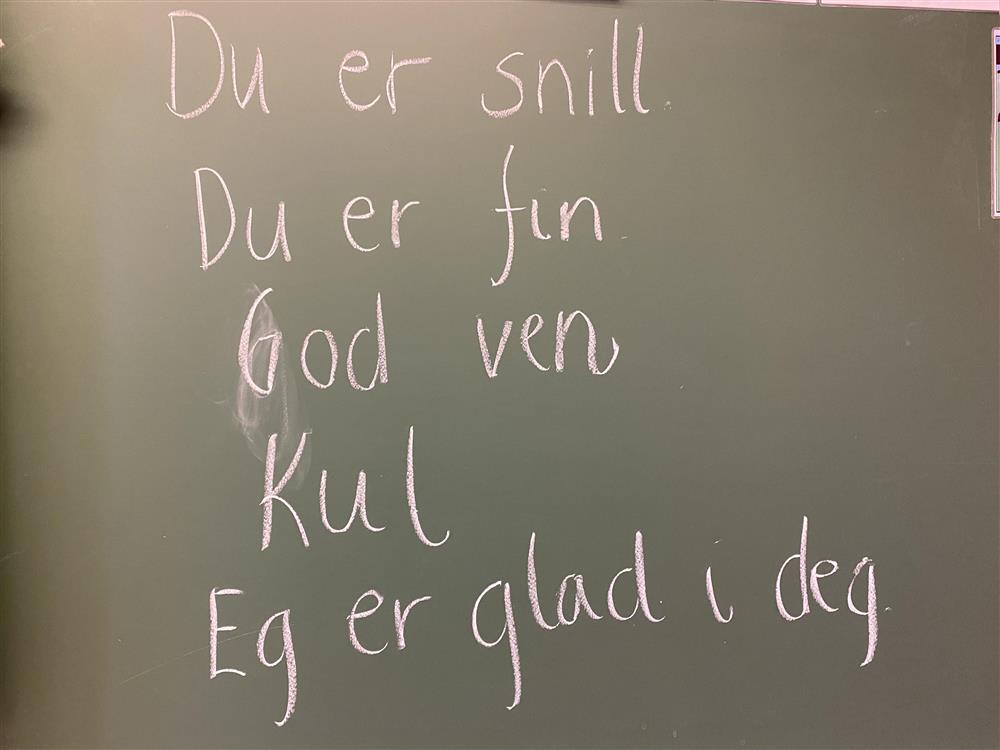 Du er snill
Du er fin
God ven
Kul
Eg er glad i deg